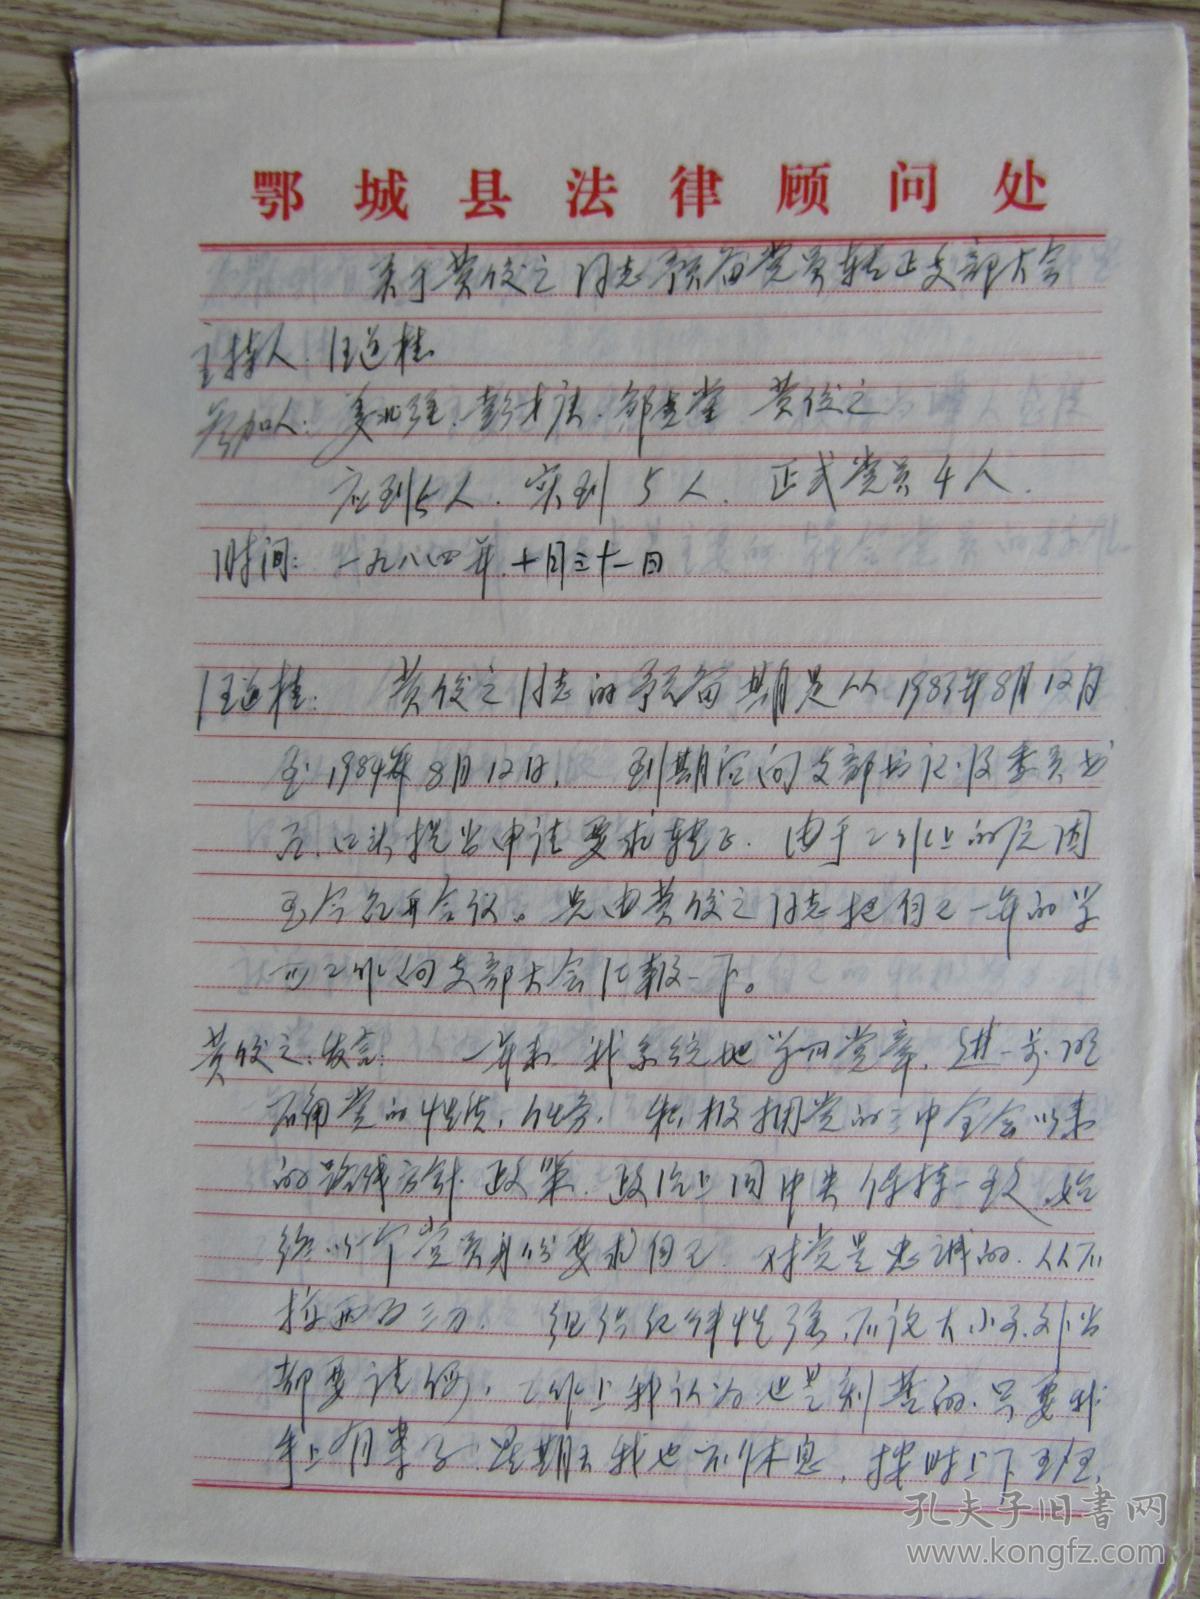 鄂城县法律顾问处
关于黄俊之同志预备党员转正支部大会
主持人：汪道桂
参加人：姜 强、彭才 、邹 堂 黄俊之
应到5人、实到5人、正式党员4人.
时间：一九八四年、十月三十一日
汪道桂： 黄俊之同志的予备期是从1983年8月12日
至1984年8月12日、 到期 向支部书记及委员书
面、口头提出申请要求转正. 由于工作上的原因
至今召开会议。先由黄俊之同志把自己一年的学
习工作向支部大会汇报一下。
黄俊之：发言： 一年来、我系统地学习党章、进一步明
确党的性质、任务、积极拥党的三中全会以来
的路线方针、政策、政治上同中央保持一致、始
终以一个党员身份要求自己、对党是忠诚的、从不
拉两面三刀、 组织纪律性强、不论大小事、外出
都要请假、工作上我认为也是刻苦的、只要我
手上有案子、星期天我也不休息、按时上下班、
孔夫子旧书网
www.kongfz.com